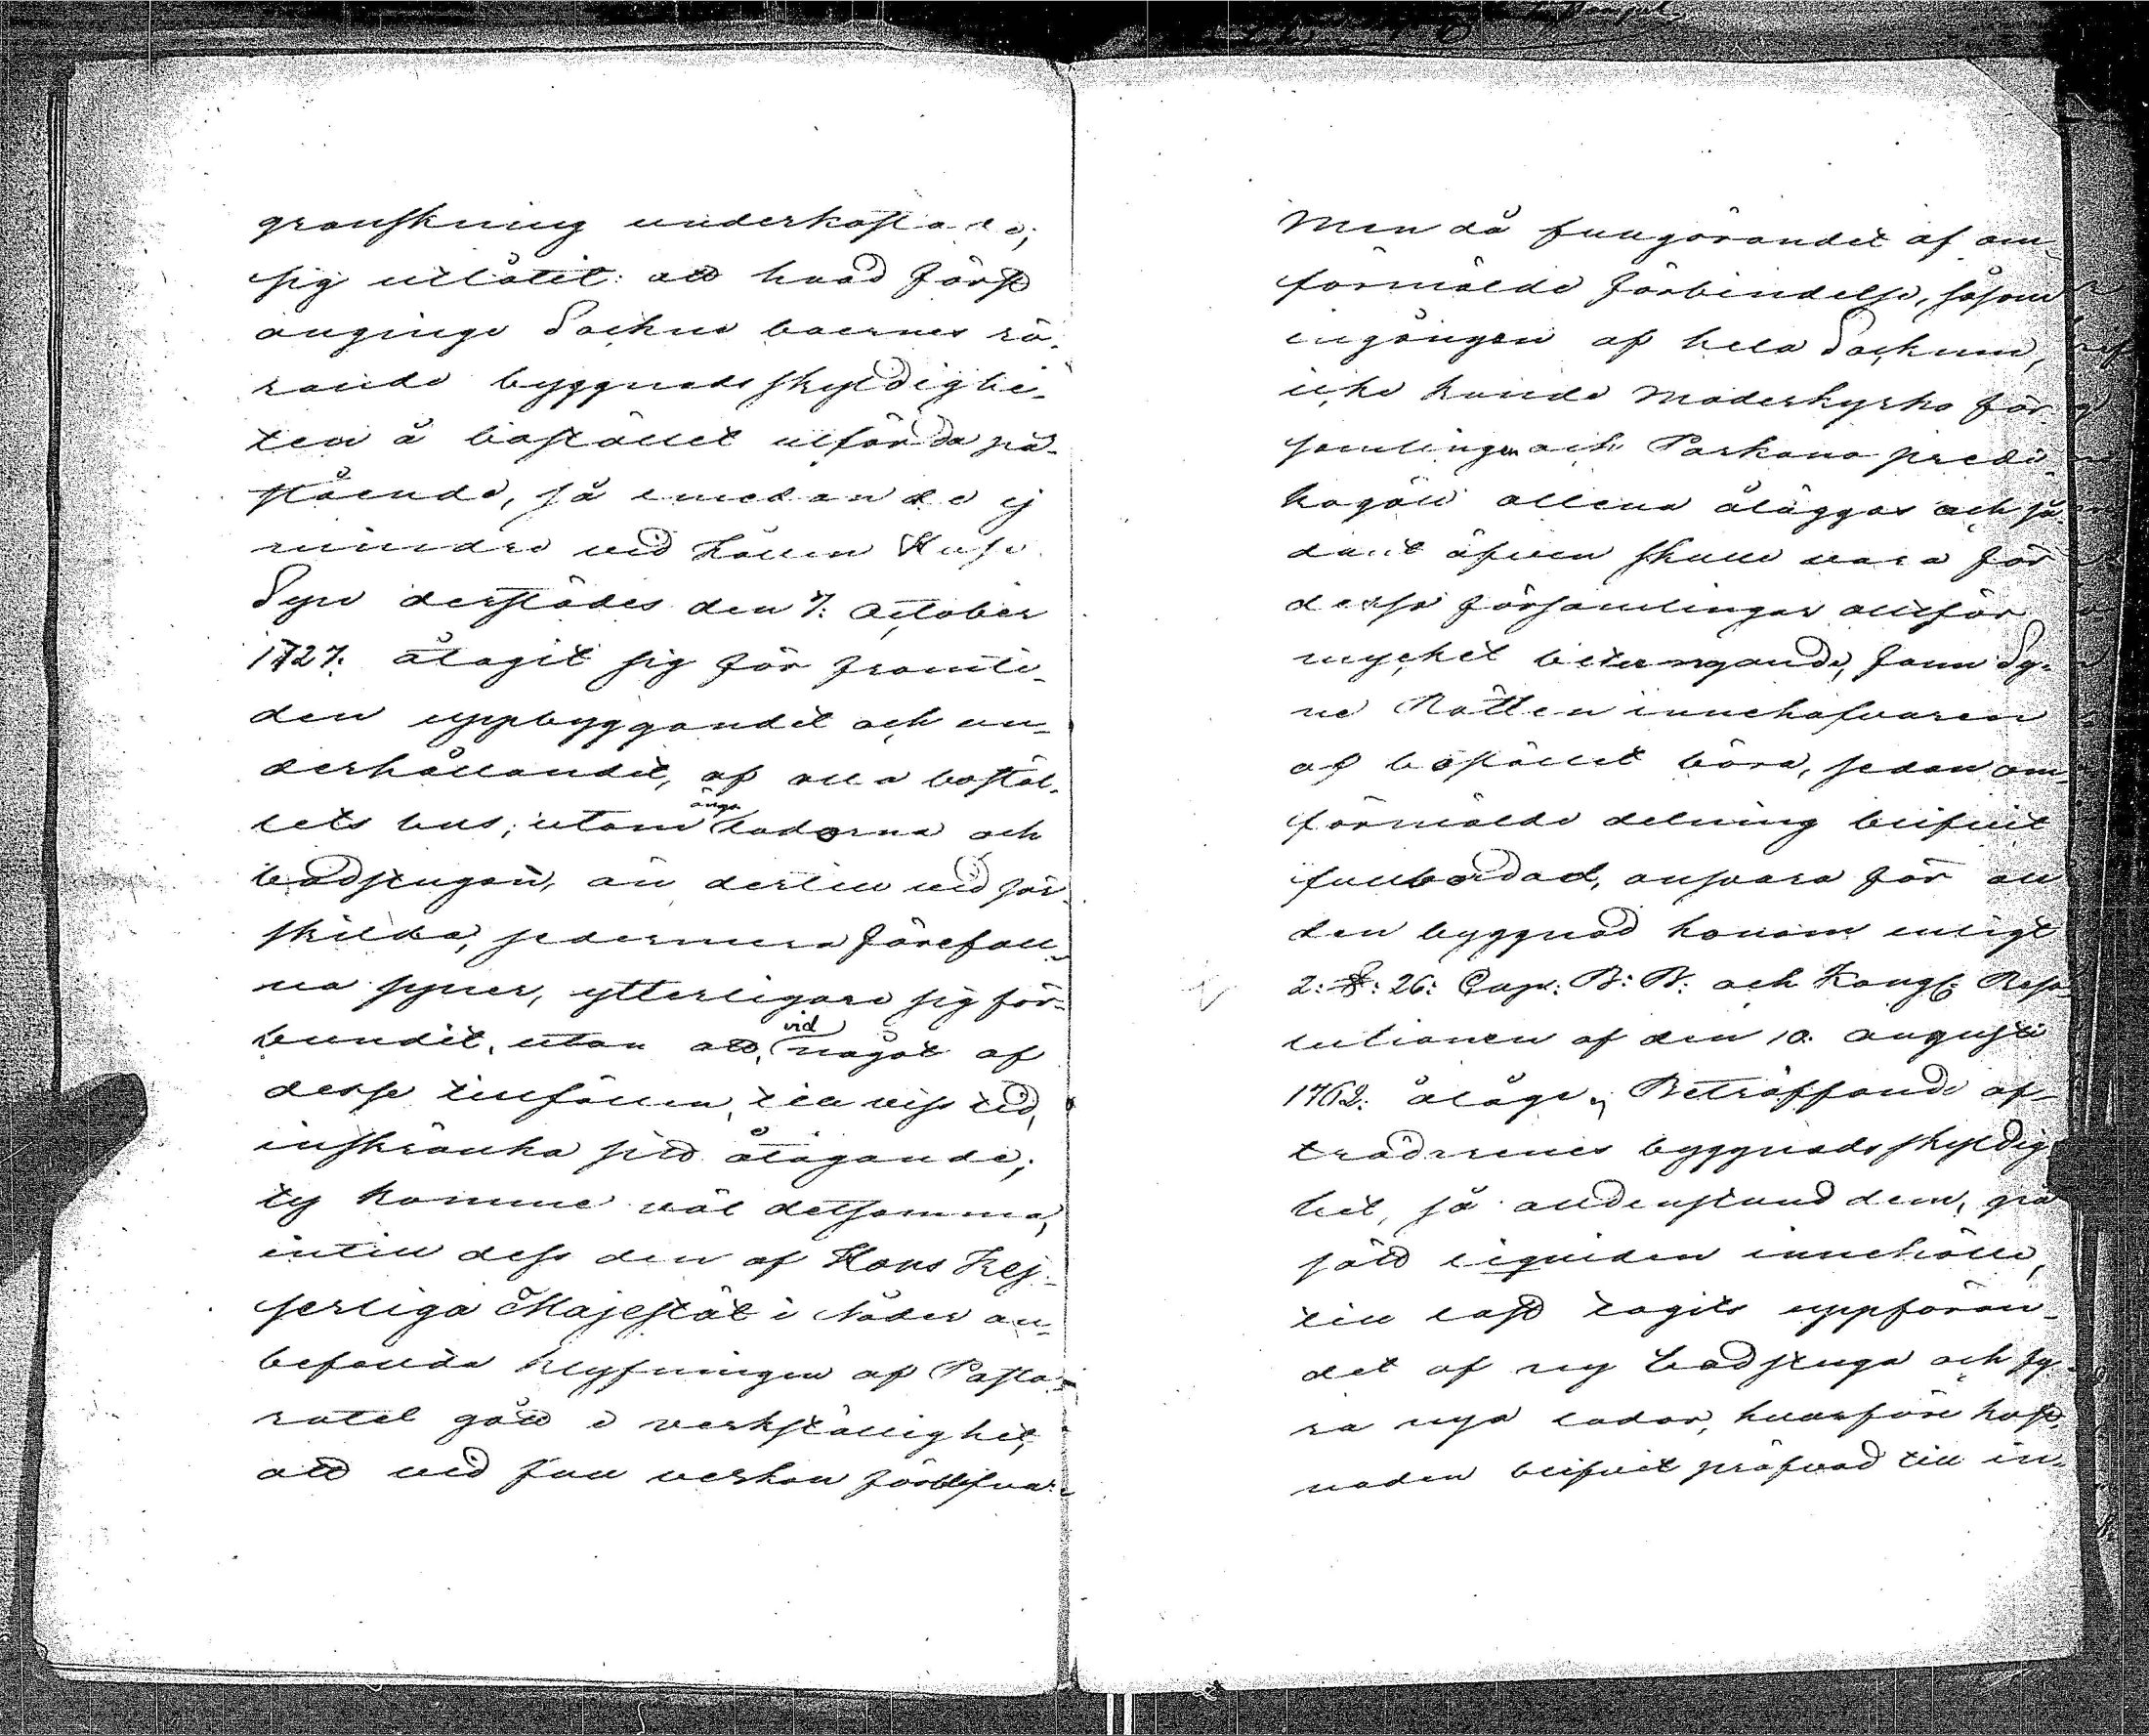 granskning underkastade,
sig utlåtit: att hvad först
anginge Sockne boernes rö-
rande byggnads skyldighe-
ten å bostället utförda på-
stående, så emedan de ej
mindre vid hållen Huse
Syn derstädes den 7. October
1727. åtagit sig för framti-
den uppbyggandet och un-
derhållandet, af alla bostäl-
lets hus, utom ängs ladorna och
badstugan, än dertill vid sär-
skilda, sedermera förefall-
na syner, ytterligare sig för-
bundit, utan att, vid något af
desse tillfällen, till viss tid,
inskränka sitt åtagande;
ty komme väl detsamma,
intill dess den af Hans Kej-
serliga Majestät i Nåder an-
befallda klyfningen af Pasto-
ratet gått i verkställighet,
att vid full verkan förblifva:
Men då fullgörandet af om-
förmälde förbindelse, såsom
ingången af hela Socknen,
icke kunde Moderkyrko för-
samlingen och Parkano predi-
kogäll allena åläggas och så-
dant äfven skulle vara för
desse församlingar alltför
mycket betungande, fann Sy-
ne Rätten innehafvaren
af bostället böra, sedan om-
förmälde delning blifvit
fullbordad, ansvara för all
den byggnad honom enligt
2: §: 26: Cap: B: B: och Kongl: Reso-
lutionen af den 10. Augusti
1762. åläge, Beträffande af-
trädarenes byggnads skyldig
het, så aldenstund dem, gra
såld liquiden innehölle,
till last tagits uppföran-
det af ny badstuga och fy-
ra nya lador, hvarföre kost-
naden blifvit pröfvad till in-